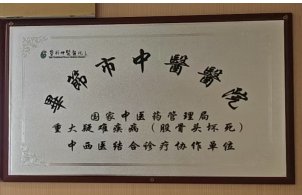 畢節市中醫醫院
国家中医药管理局
重大疑难疾病（股骨头坏死）
中西医结合诊疗协作单位